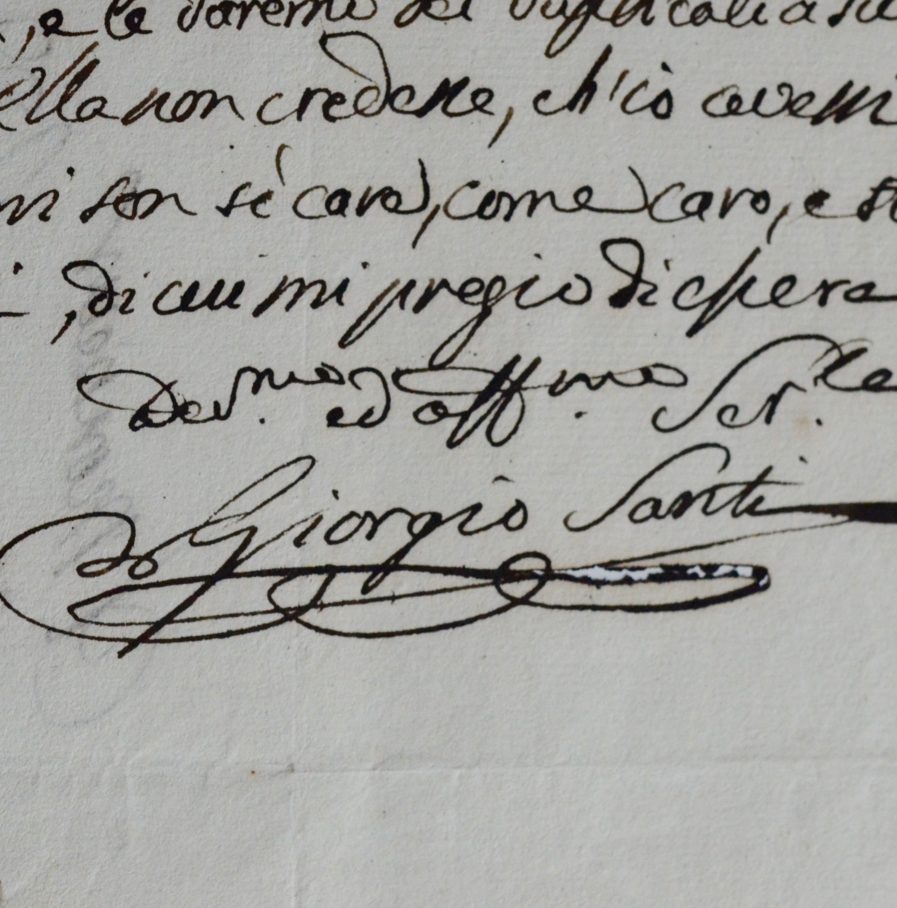 , e le daremo dei duplicati a su
Ella non credesse, ch'io avessi
mi son sé cara, come caro, e st
, di cui mi pregio di essere
Dev.mo ed aff.mo Ser.le
Giorgio Santi